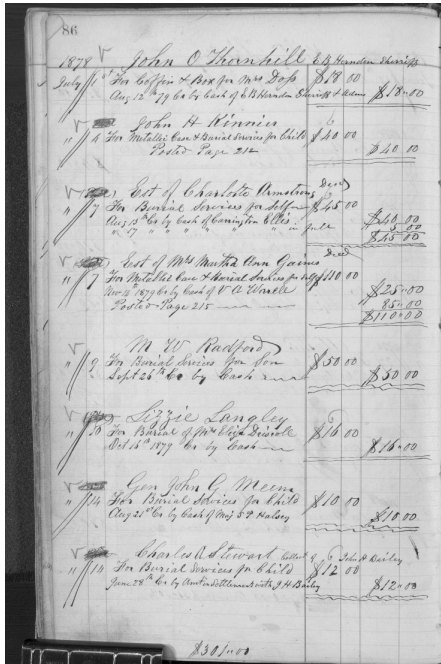 86
1878 John O Thornhill E B Herndon Sheriff
July 1st For Coffin & Box for Mrs Doss $18 00
Aug 12th 79 Cr by Cash of E B Herndon Sheriff & Admr $18=00
John H Kinnier
" 4 For Metallic Case & Burial Services for Child $40 00
Posted Page 212 $40 00
Est of Charlotte Armstrong Decd
" 7 For Burial Services for Self $45 00
Aug 15th Cr by Cash of Carrington Ellis $40=00
" 17 " " " " " " in full 5 00
$45=00
Est of Mrs Martha Ann Gaines Decd
" 7 For Metallic Case & Burial Services for Self $110 00
Nov 4th 1879 Cr by Cash of V A $25=00
Posted Page 215 85=00
$110=00
M W Radford
" 9 For Burial Services for Son $50 00
Sept 26th Cr by Cash $50 00
Lizzie Langley
" 10 For Burial of Mrs Eliza Driscoll $16 00
Oct 16th 1879 Cr by Cash $16=00
Gen John G Meem
" 14 For Burial Services for Child $10 00
Aug 21st Cr by Cash of Maj S P Halsey $10 00
Charles R Stewart Collect of John H Bailey
" 14 For Burial Services for Child $12 00
June 28th Cr by Amt on Settlement with J H Bailey $12=00
$301=00